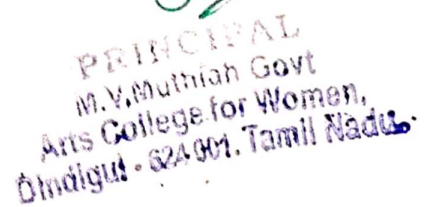 PRINCIPAL
M.V.Muthiah Govt
Arts College for Women,
Dindigul - 624 001. Tamil Nadu.